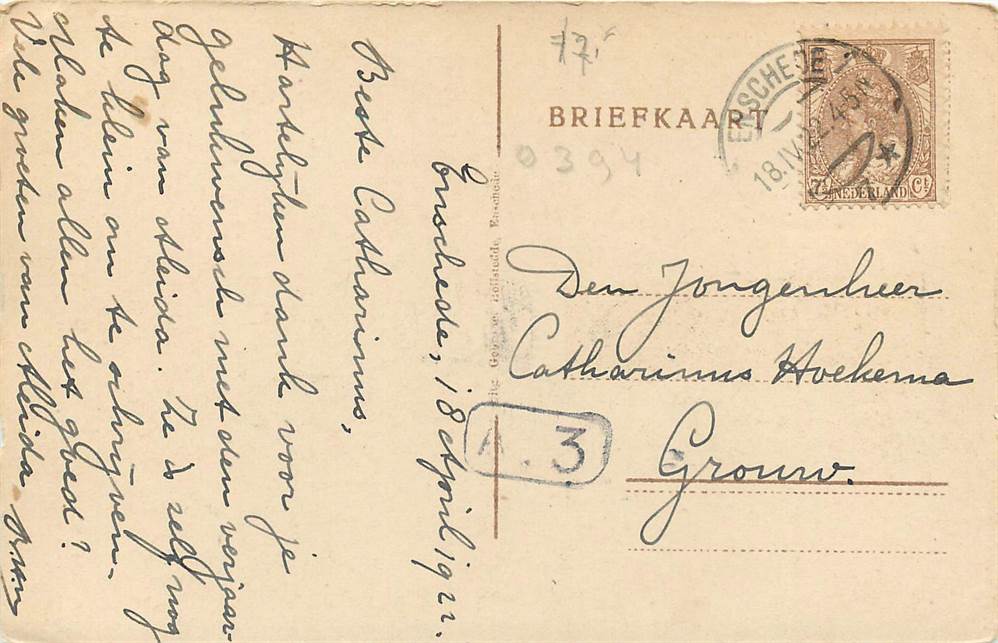 Enschede, 18 April 1922.
Beste Catharinus,
Hartelijken dank voor je
gelukwensch met den verjaar-
dag van Aleida. Ze is zelf nog
te klein om te schrijven.
Maken allen het goed?
Vele groeten van Aleida
17,-
BRIEFKAART
0394
ENSCHEDE
18.IV.22 4-5N
7½ NEDERLAND Ct
Den Jongenheer
Catharinus Hoekema
Grouw.
A. 3
Gebrs. Hofstedde, Enschede